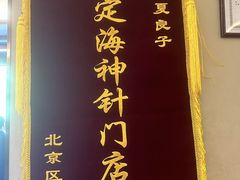 夏良子
定海神针门店
北京区